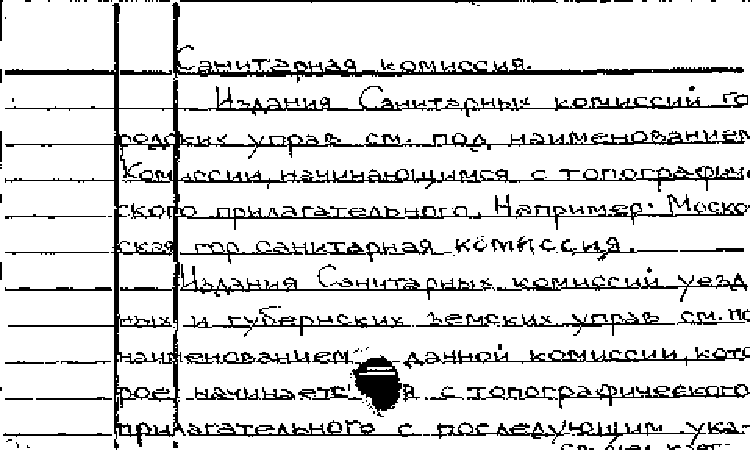 Санитарная комиссия.
Издания Санитарных комиссий го
родских управ см. под наименованием
Комиссии, начинающимся с топографиче
ского прилагательного. Например: Моско
ская гор. санитарная комиссия.
Издания Санитарных комиссий уезд
ных и губернских земских управ см. по
наименованием данной комиссии, кото
рое начинается с топографического
прилагательного с последующим ука-